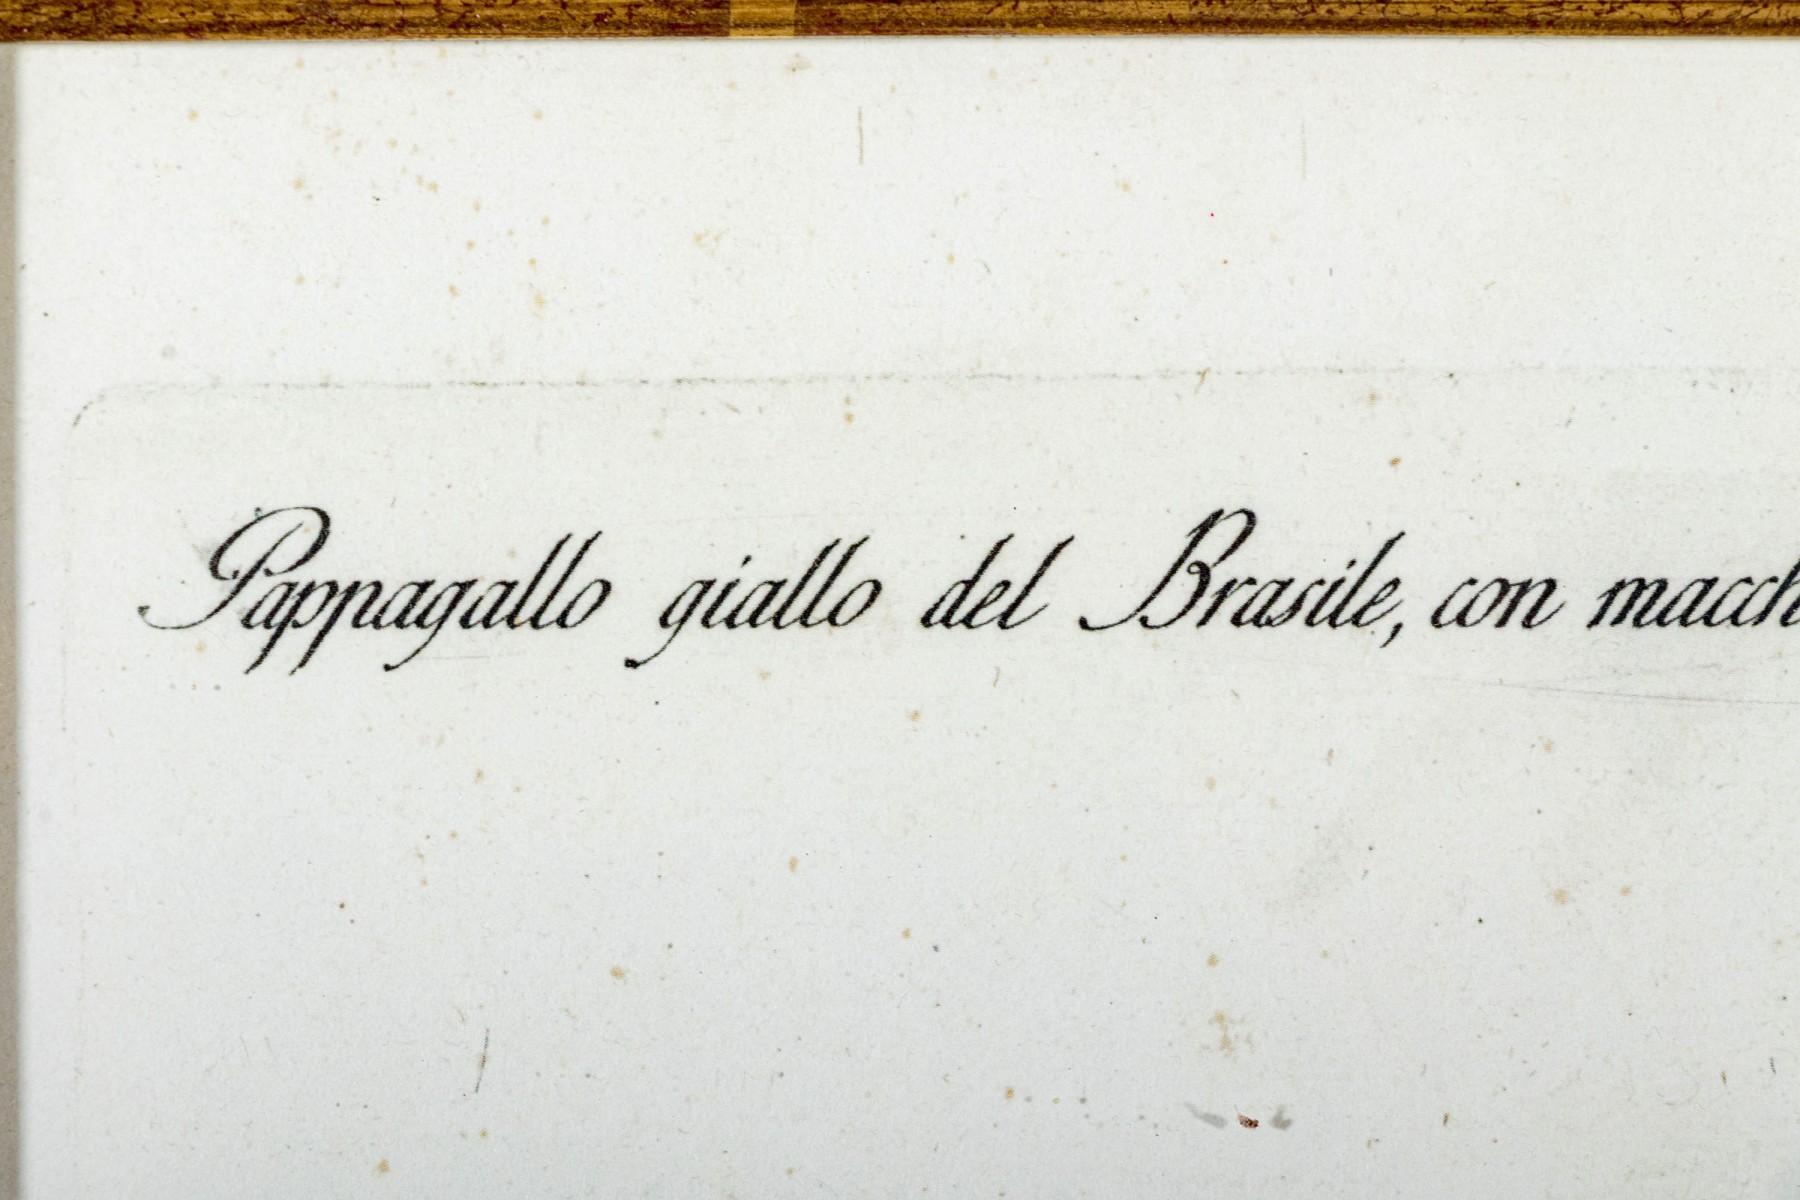 Pappagallo giallo del Brasile, con macch